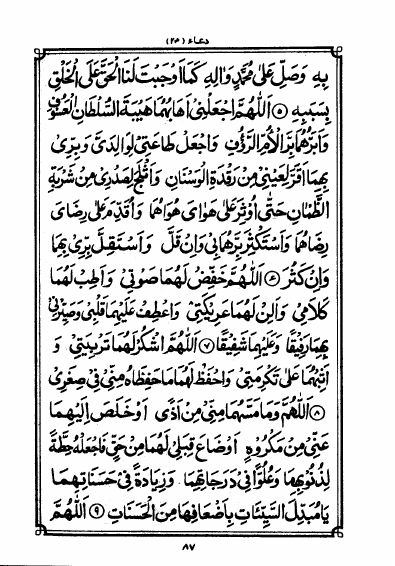 دعاء (۲۴)
بِهِ وَصَلِّ عَلٰى مُحَمَّدٍ وَاٰلِهِ كَمَا اَوْجَبْتَ لَنَا الْحَقَّ عَلَى الْخَلْقِ
بِسَبَبِهِ ⑤ اَللّٰهُمَّ اجْعَلْنِيْ اَهَابُهُمَا هَيْبَةَ السُّلْطَانِ الْعَسُوْفِ
وَاَبَرُّهُمَا بِرَّ الْاُمِّ الرَّؤُفِ وَاجْعَلْ طَاعَتِيْ لِوَالِدَيَّ وَبِرِّيْ
بِهِمَا اَقَرَّ لِعَيْنِيْ مِنْ رَقْدَةِ الْوَسْنَانِ وَاَثْلَجَ لِصَدْرِيْ مِنْ شَرْبَةِ
الظَّمْاٰنِ حَتّٰى اُوْثِرَ عَلٰى هَوَايَ هَوَاهُمَا وَاُقَدِّمَ عَلٰى رِضَايَ
رِضَاهُمَا وَاَسْتَكْثِرَ بِرَّهُمَا بِيْ وَاِنْ قَلَّ وَاَسْتَقِلَّ بِرِّيْ بِهِمَا
وَاِنْ كَثُرَ ⑥ اَللّٰهُمَّ خَفِّضْ لَهُمَا صَوْتِيْ وَاَطِبْ لَهُمَا
كَلَامِيْ وَاَلِنْ لَهُمَا عَرِيْكَتِيْ وَاعْطِفْ عَلَيْهِمَا قَلْبِيْ وَصَيِّرْنِيْ
بِهِمَا رَفِيْقًا وَعَلَيْهِمَا شَفِيْقًا ⑦ اَللّٰهُمَّ اشْكُرْ لَهُمَا تَرْبِيَتِيْ وَ
اَثِبْهُمَا عَلٰى تَكْرِمَتِيْ وَاحْفَظْ لَهُمَا مَا حَفِظَاهُ مِنِّيْ فِيْ صِغَرِيْ
⑧ اَللّٰهُمَّ وَمَا مَسَّهُمَا مِنِّيْ مِنْ اَذًى اَوْ خَلَصَ اِلَيْهِمَا
عَنِّيْ مِنْ مَكْرُوْهٍ اَوْ ضَاعَ قِبَلِيْ لَهُمَا مِنْ حَقٍّ فَاجْعَلْهُ حِطَّةً
لِذُنُوْبِهِمَا وَعُلُوًّا فِيْ دَرَجَاتِهِمَا وَزِيَادَةً فِيْ حَسَنَاتِهِمَا
يَا مُبَدِّلَ السَّيِّئَاتِ بِاَضْعَافِهَا مِنَ الْحَسَنَاتِ ⑨ اَللّٰهُمَّ
۸۷